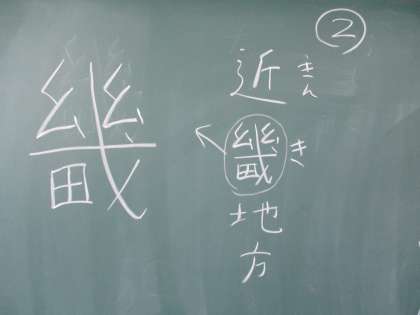 ②
近畿地方
きん
き
畿